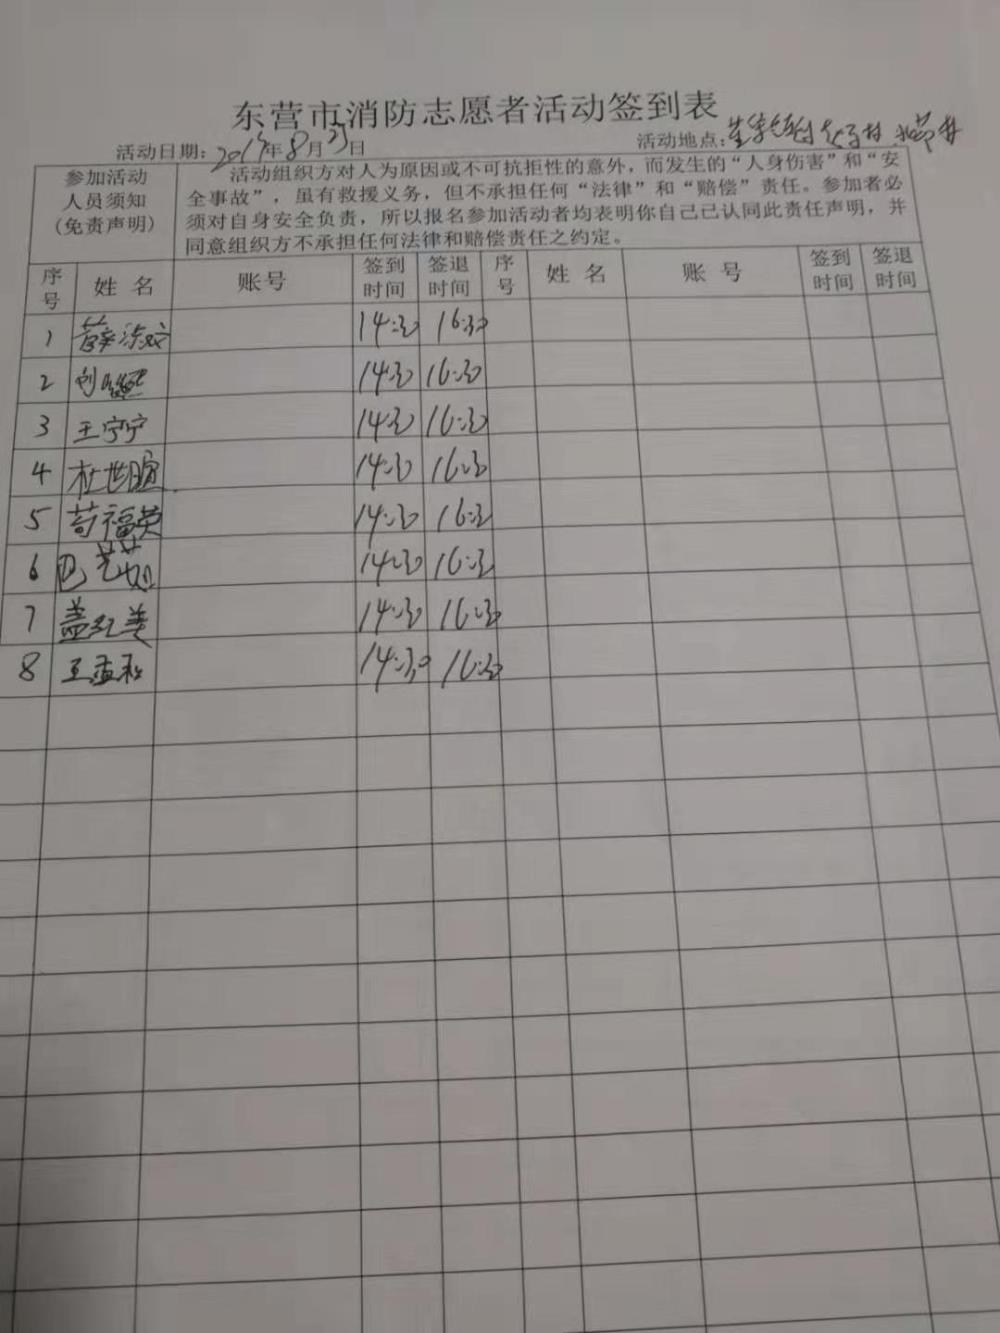 东营市消防志愿者活动签到表
活动日期：2019年8月31日 活动地点：
参加活动人员须知（免责声明）
活动组织方对人为原因或不可抗拒性的意外，而发生的“人身伤害”和“安
全事故”，虽有救援义务，但不承担任何“法律”和“赔偿”责任。参加者必
须对自身安全负责，所以报名参加活动者均表明你自己已认同此责任声明，并
同意组织方不承担任何法律和赔偿责任之约定。
序号 姓名 账号 签到时间 签退时间 序号 姓名 账号 签到时间 签退时间
1 薛 14:30 16:30
2 刘 14:30 16:30
3 王宁宁 14:30 16:30
4 杜世暄 14:30 16:30
5 苟福英 14:30 16:30
6 巴艺茹 14:30 16:30
7 盖红美 14:30 16:30
8 王孟和 14:30 16:30